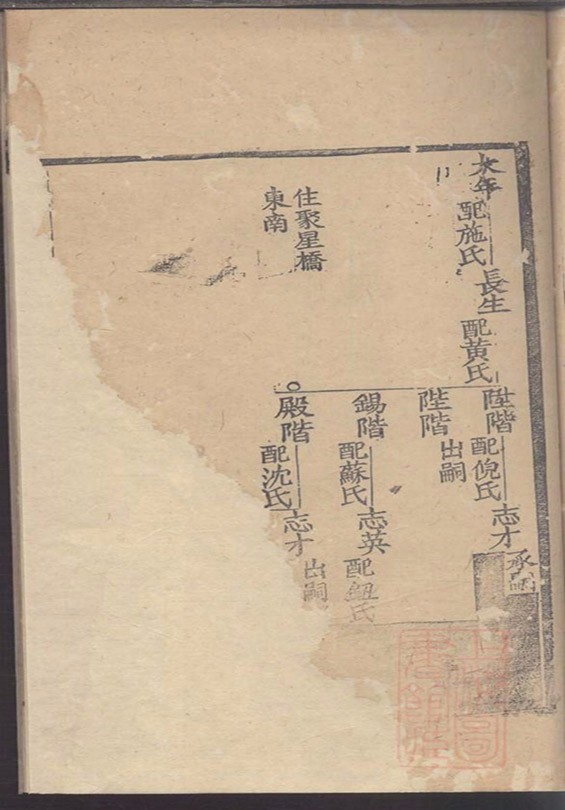 大年
配施氏
長生
配黄氏
陞階
配倪氏
志才
承嗣
陛階
出嗣
錫階
配蘇氏
志英
配鈕氏
殿階
配沈氏
志才
出嗣
住聚星橋
東南